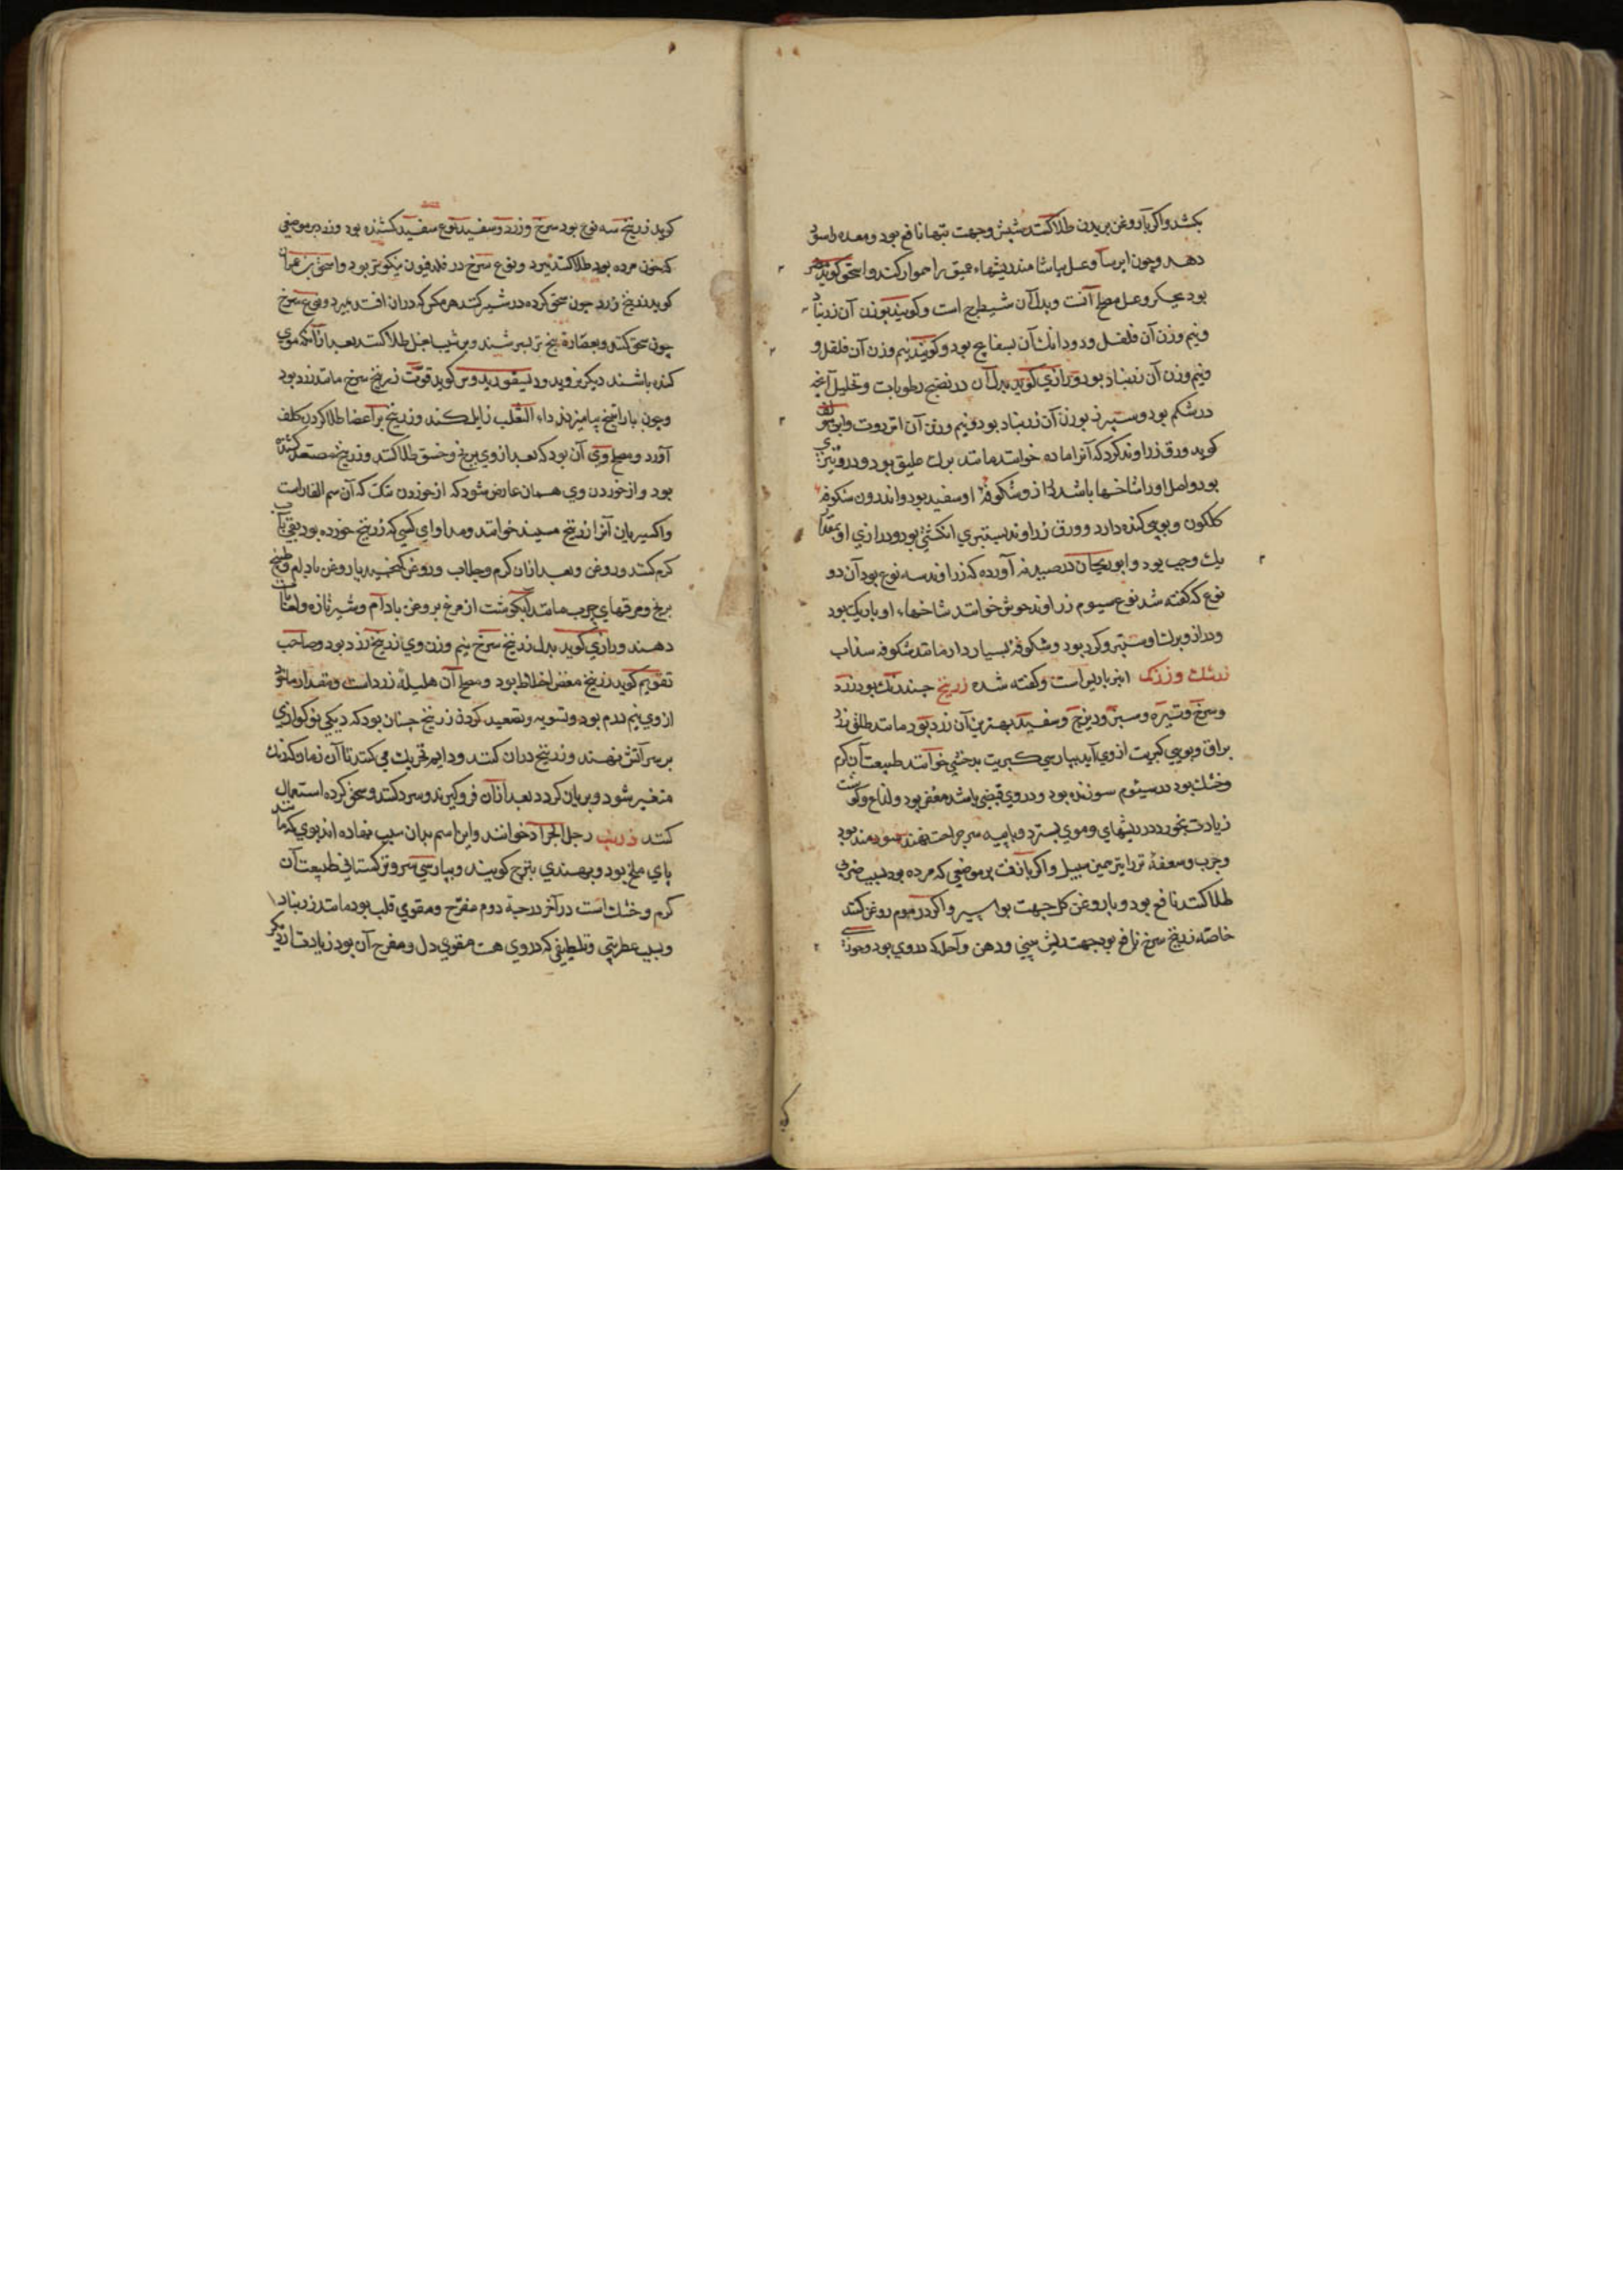 بکشد واکر باروغن بریدن طلا کنند شپش وجهت تبها نافع بود ومعده را سود
دهد وچون ایرسا وعسل بیاشامند ریشهاء عمیق را هموار کند واسحق کوید مضر
بود بجکر وعسل مصلح آنست وبدل آن شیطرج است وکویند بوزن آن زرنباد
ونیم وزن آن فلفل ودودانک آن بسفایج بود وکویند نیم وزن آن فلفل و
ونیم وزن آن زرنباد بود ورازی کوید بدل آن در نضج رطوبات وتحلیل آنچه
در شکم بود وسپرز بوزن آن زرنباد بود ونیم وزن آن انزروت وابن مؤلف
کوید ورق زراوند کرد که آنرا ماده خوانند مانند برک علیق بود ودرو تیزی
بود واصل او را شاخها باشد دراز وشکوفه او سفید بود واندرون شکوفه
کلکون وبویی کنده دارد وورق زراوند بستبری انکشتی بود ودرازی او بمقدار
یک وجب بود وابوریحان در صیدنه آورده که زراوند سه نوع بود آن دو
نوع که کفته شد نوع سیوم زراوند حوش خوانند شاخهاء او باریک بود
ودراز وبرک او ستبر وکرد بود وشکوفه بسیار دارد مانند شکوفه سذاب
زرشک وزرک انبرباریس است وکفته شده زرنیخ چند رنک بود زرد
وسرخ وتیره وسبز ودیزج وسفید بهترین آن زرد بود مانند طلق زرد
براق وبویی کبریت ازوی آید بپارسی کبریت بدخشی خوانند طبیعت آن کرم
وخشک بود در سیئوم سوزنده بود ودروی قبضی باشد معفن بود ولذاع وکوشت
زیادت بخورد در ریشهای وموی بسترد وباپیه سر جراحت نهند سودمند بود
وجرب وسعفهٔ تر را بترخمین سبیل واکر بازفت بر موضعی که مرده بود بسبب ضربی
طلا کنند نافع بود وباروغن کل جهت بواسیر واکر در موم روغن کنند
خاصه زرنیخ سرخ نافع بود جهت ریش بینی ودهن وآکله که دروی بود وجوزی
کوید زرنیخ سه نوع بود سرخ وزرد وسفید نوع سفید کشنده بود وزرد بر موضعی
که خون مرده بود طلا کنند ببرد ونوع سرخ در فلدفیون نیکوتر بود واسحق بن عمران
کوید زرنیخ زرد چون سحق کرده در شیر کنند هر مکس که دران افتد بمیرد ونوع سرخ
چون سحق کنند وبعصاره بنج تر بسرشند وبر شیب بغل طلا کنند بعد ازآنکه موی
کنده باشند دیکر نروید ودیسقوریدوس کوید قوت زرنیخ سرخ مانند زرد بود
وچون باراتینج بیامیزند داء الثعلب زایل کند وزرنیخ بر اعضا طلا کردن کلف
آورد ومصلح وی آن بود که بعد ازوی برنج وخسق طلا کنند وزرنیخ مصعد کشنده
بود وازخوردن وی همان عارض شود که ازخوردن شک که آن سم الفار است
واکسیریان آنرا زرنیخ مسیند خوانند ومداوای کسی که زرنیخ خورده بود بقی بآب
کرم کنند وروغن وبعد ازان کرم وجلاب وروغن کنجید یا روغن بادام وطبیخ
برنج ومرقهای چرب مانند آبکوشت ازمرغ بروغن بادام وشیر تازه ولعابات
دهند ورازی کوید بدل زرنیخ سرخ نیم وزن وی زرنیخ زرد بود وصاحب
تقویم کوید زرنیخ معفن اخلاط بود ومصلح آن هلیله زرد است ومقدار ماخوذ
ازوی نیم درم بود وتسویه وتصعید کردن زرنیخ چنان بود که دیکی نو کوازی
بر سر آتش نهند وزرنیخ دران کنند ودایم تحریک می کنند تا آن زمان که رنک
متغیر شود وبریان کردد بعد ازان فروکیرند وسرد کنند وسحق کرده استعمال
کنند زرنب رجل الجراد خوانند واین اسم بدان سبب نهاده اند بوی که مانند
پای ملخ بود وبهندی بترج کویند وبپارسی سرو ترکستانی طبیعت آن
کرم وخشک است در آخر درجهٔ دوم مفرح ومقوی قلب بود مانند زرنباد
وبسبب عطریتی وتلطیفی که دروی هست مقوی دل ومفرح آن بود زیادت از دیکر